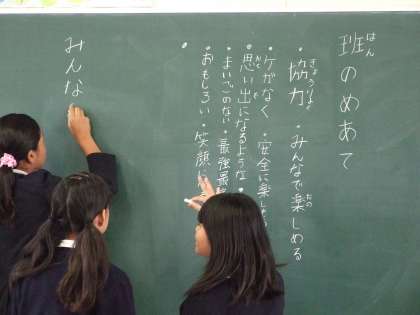 班のめあて
はん
・協力 ・みんなで楽しめる
きょうりょく
たの
・ケガなく ・安全に楽し
・思い出になるような
・まいごのない ・最強最
・おもしろい ・笑顔
みんな